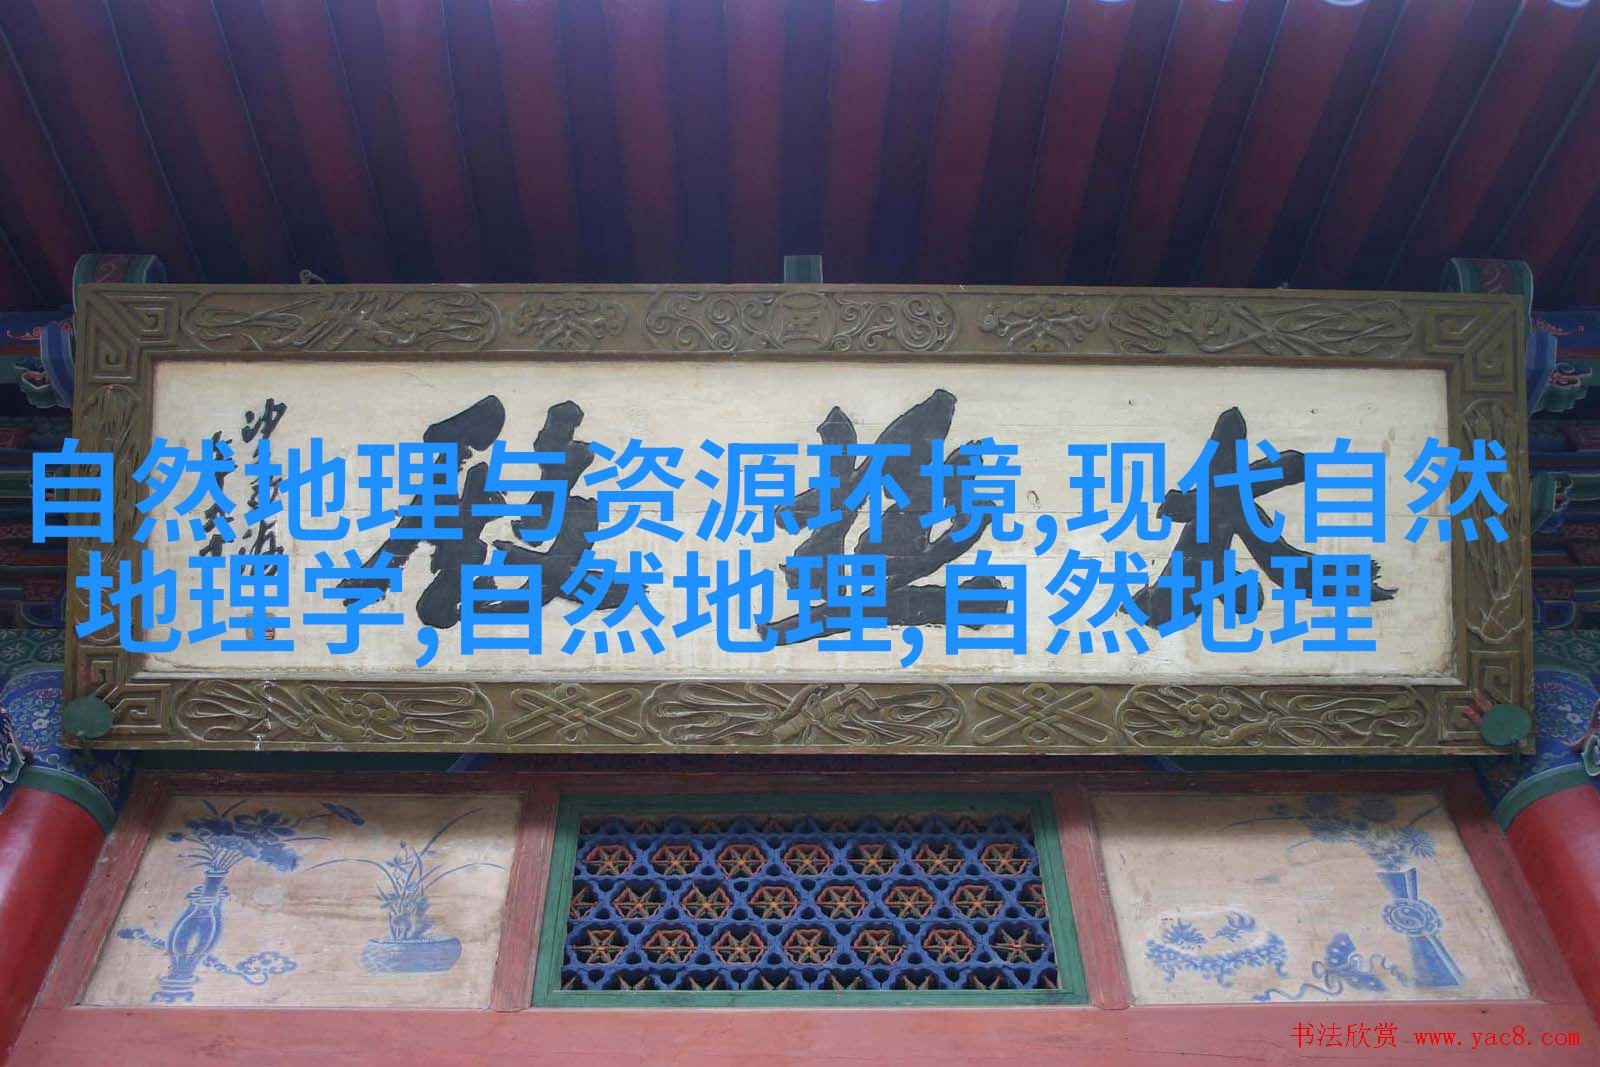 自然地理与资源环境,现代自然
地理学,自然地理,自然地理
太极殿
书法欣赏 www.yac8.com